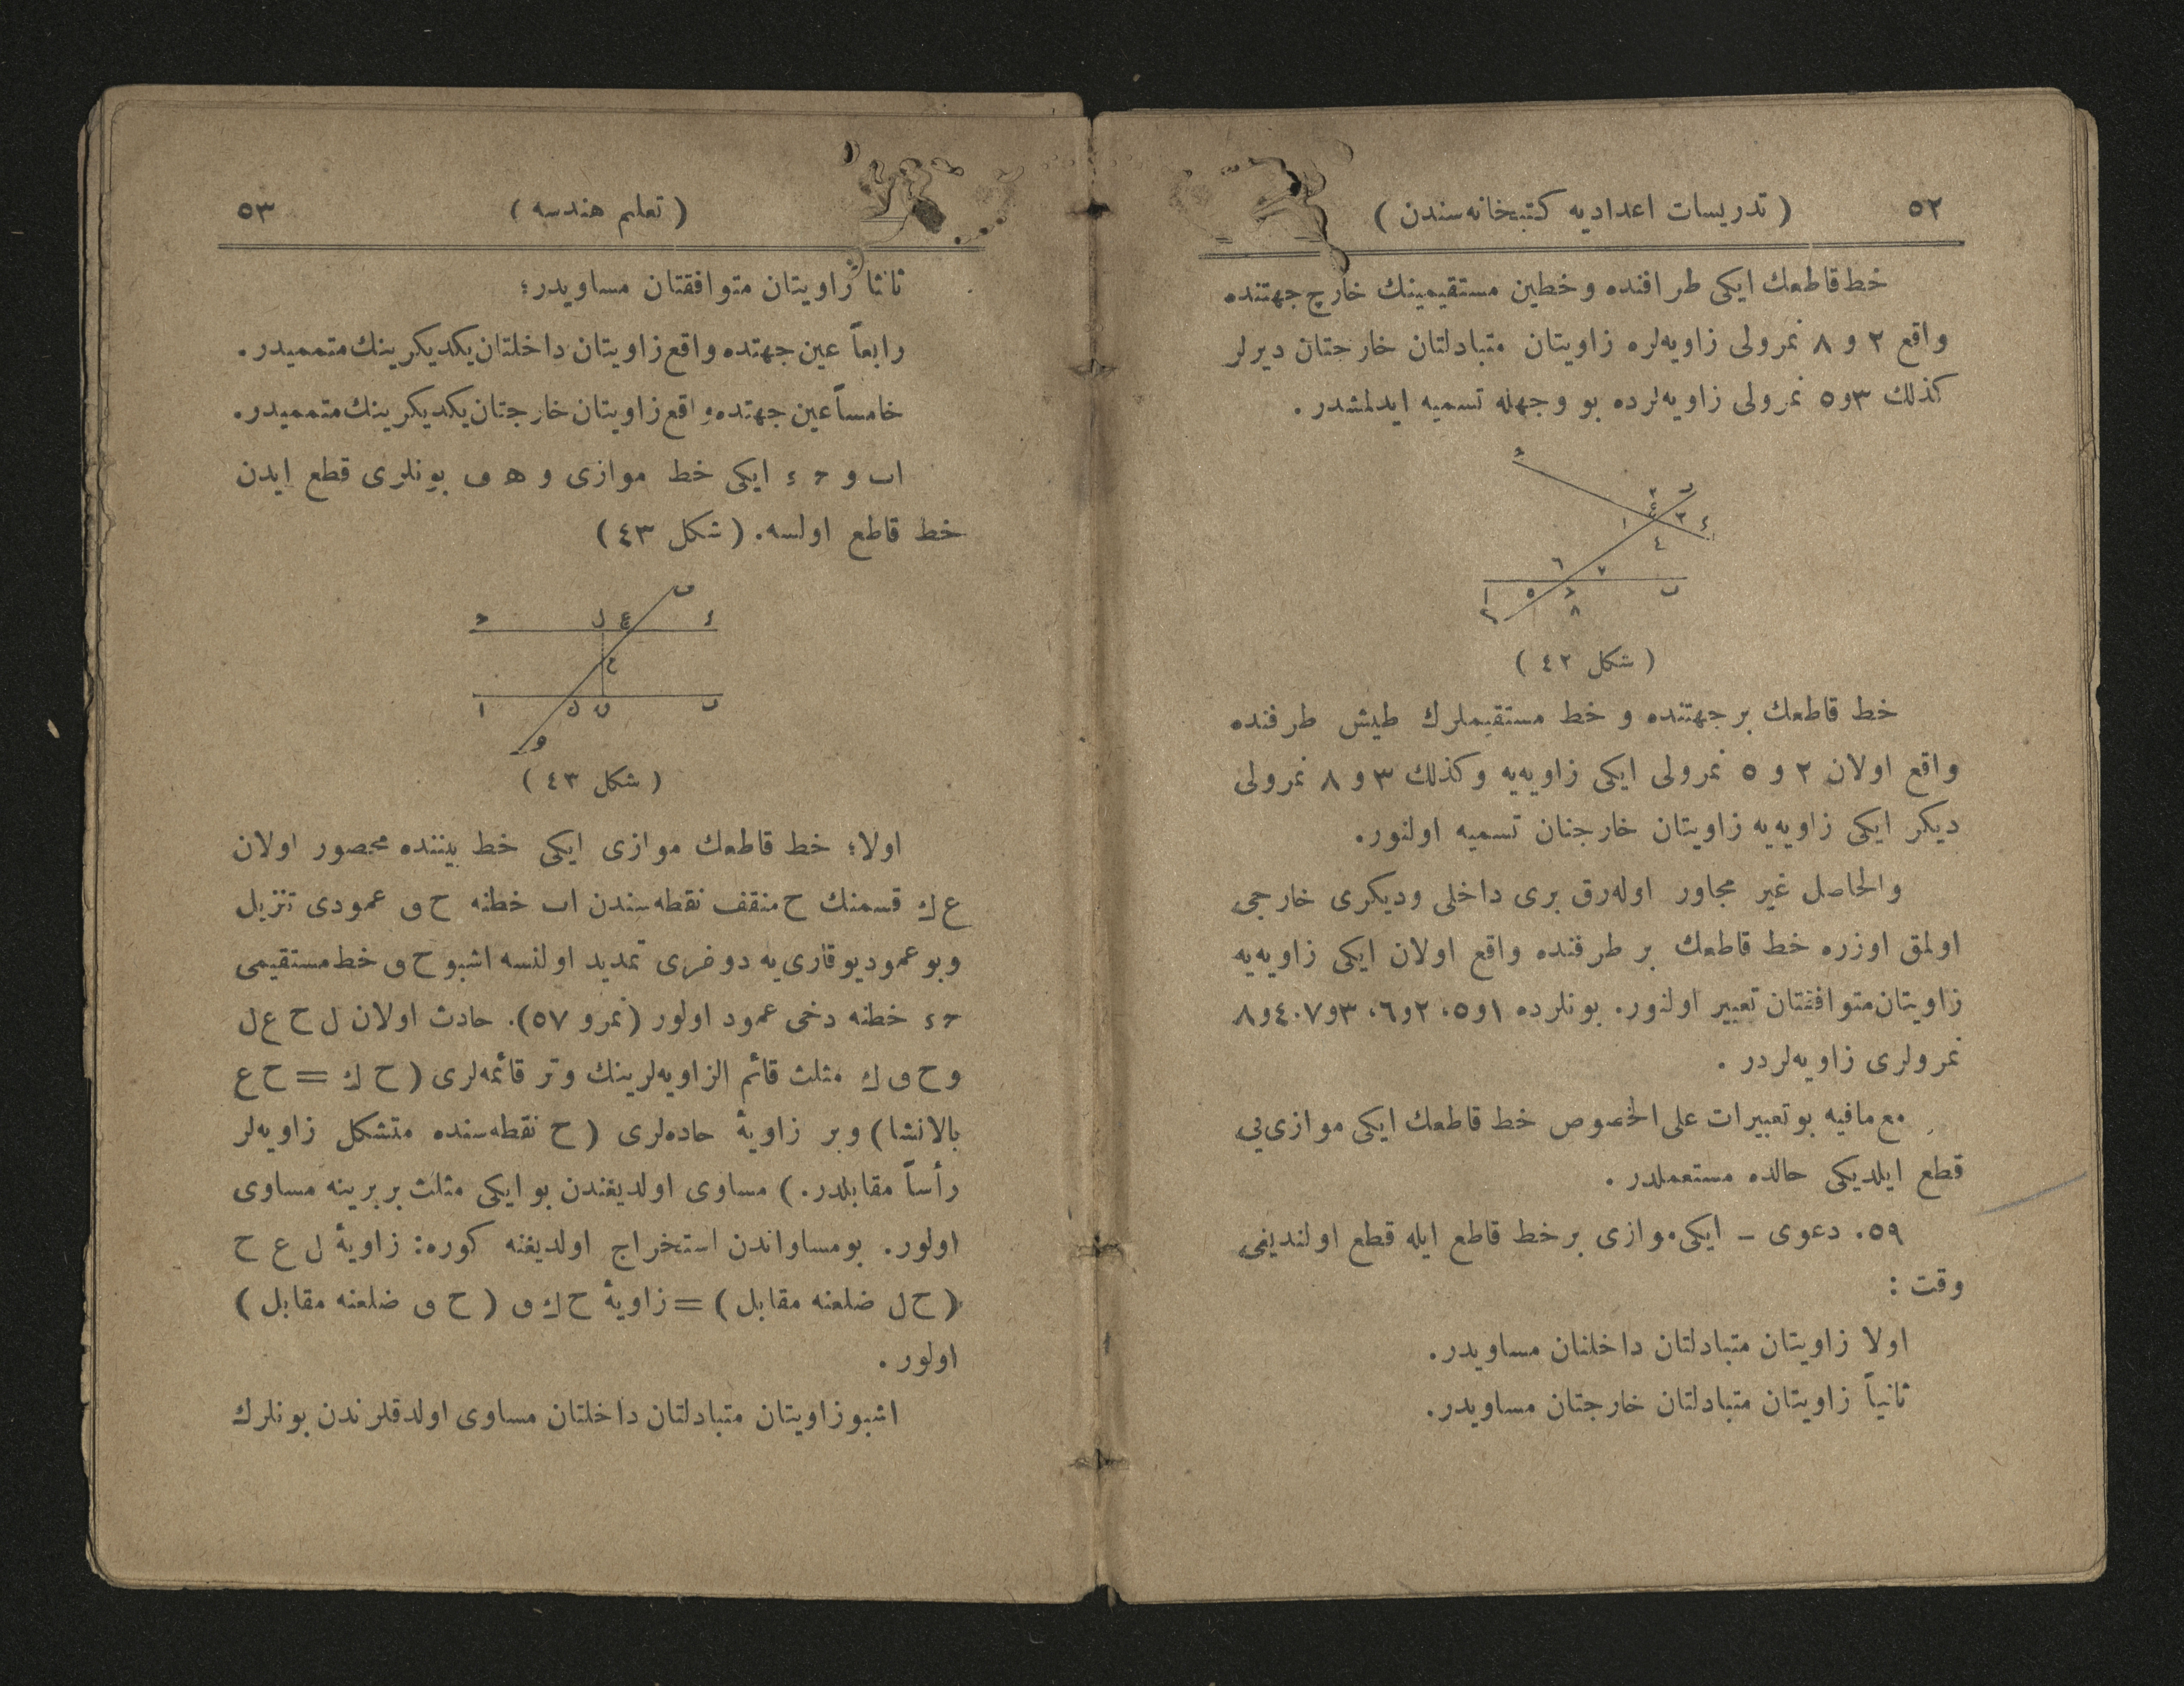 ٥٢
( تدريسات اعداديه كتبخانه‌سندن )
خط قاطعك ايكى طرافنده و خطين مستقيمينك خارج جهتنده
واقع ٢ و ٨ نمرولى زاويه‌لره زاويتان متبادلتان خارجتان ديرلر
كذلك ٣و٥ نمرولى زاويه‌لرده بو وجهله تسميه ايدلمشدر .
( شكل ٤٢ )
خط قاطعك بر جهتنده و خط مستقيملرك طيش طرفنده
واقع اولان ٢ و ٥ نمرولى ايكى زاويه‌يه وكذلك ٣ و ٨ نمرولى
ديكر ايكى زاويه‌يه زاويتان خارجتان تسميه اولنور.
والحاصل غير مجاور اوله‌رق برى داخلى وديكرى خارجى
اولمق اوزره خط قاطعك بر طرفنده واقع اولان ايكى زاويه‌يه
زاويتان متوافقتان تعبير اولنور. بونلرده ١و٥، ٢و٦، ٣و٤٠٧و٨
نمرولرى زاويه‌لردر .
مع مافيه بو تعبيرات على الخصوص خط قاطعك ايكى موازى‌يى
قطع ايلديكى حالده مستعملدر .
٥٩. دعوى – ايكى موازى بر خط قاطع ايله قطع اولنديغى
وقت :
اولا زاويتان متبادلتان داخلتان مساويدر.
ثانياً زاويتان متبادلتان خارجتان مساويدر.
( تعليم هندسه )
٥٣
ثالثا زاويتان متوافقتان مساويدر؛
رابعاً عين جهتده واقع زاويتان داخلتان يكديكرينك متمميدر.
خامساً عين جهتده واقع زاويتان خارجتان يكديكرينك متمميدر.
اب و حء ايكى خط موازى و ه ف بونلرى قطع ايدن
خط قاطع اولسه. ( شكل ٤٣ )
( شكل ٤٣ )
اولا؛ خط قاطعك موازى ايكى خط بيننده محصور اولان
ع ك قسمنك ح منقف نقطه‌سندن اب خطنه ح ق عمودى تنزيل
وبو عمود يوقارى‌يه دوغرى تمديد اولنسه اشبو ح ق خط مستقيمى
حء خطنه دخى عمود اولور (نمرو ٥٧). حادث اولان ل ح ع ل
و ح ق ك مثلث قائم الزاويه‌لرينك وتر قائمه‌لرى ( ح ك = ح ع
بالانشا) وبر زاويهٔ حاده‌لرى ( ح نقطه‌سنده متشكل زاويه‌لر
رأساً مقابلدر.) مساوى اولديغندن بو ايكى مثلث بربرينه مساوى
اولور. بو مساواتدن استخراج اولديغنه كوره: زاويهٔ ل ع ح
( ح ل ضلعنه مقابل ) = زاويهٔ ح ك ق ( ح ق ضلعنه مقابل )
اولور .
اشبو زاويتان متبادلتان داخلتان مساوى اولدقلرندن بونلرك